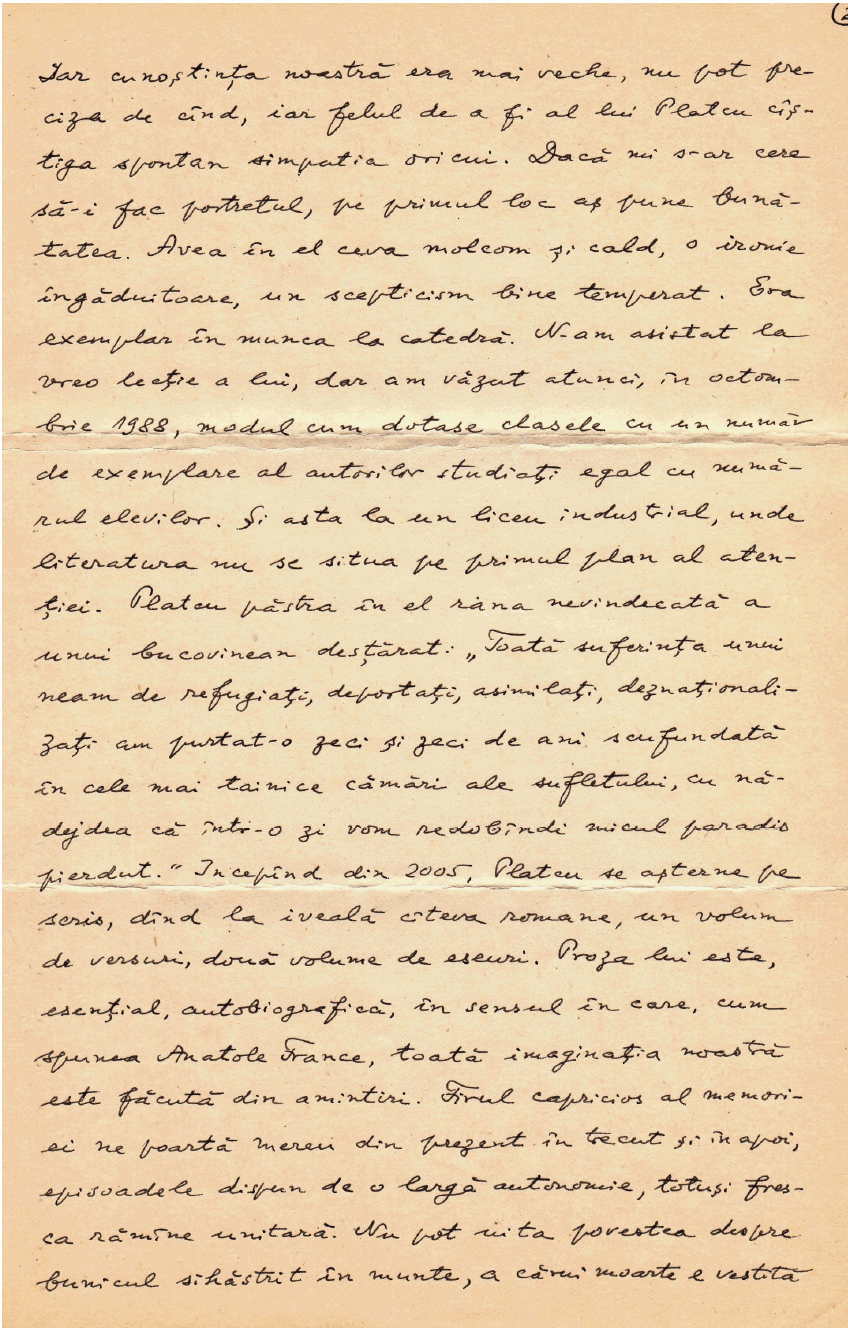 2
Iar cunoștința noastră era mai veche, nu pot pre-
ciza de cînd, iar felul de a fi al lui Platcu cîș-
tiga spontan simpatia oricui. Dacă mi s-ar cere
să-i fac portretul, pe primul loc aș pune bună-
tatea. Avea în el ceva molcom și cald, o ironie
îngăduitoare, un scepticism bine temperat. Era
exemplar în munca la catedră. N-am asistat la
vreo lecție a lui, dar am văzut atunci, în octom-
brie 1988, modul cum dotase clasele cu un număr
de exemplare al autorilor studiați egal cu numă-
rul elevilor. Și asta la un liceu industrial, unde
literatura nu se situa pe primul plan al aten-
ției. Platcu păstra în el rana nevindecată a
unui bucovinean desțărat: „Toată suferința unui
neam de refugiați, deportați, asimilați, deznaționali-
zați am purtat-o zeci și zeci de ani scufundată
în cele mai tainice cămări ale sufletului, cu nă-
dejdea că într-o zi vom redobîndi micul paradis
pierdut.” Începînd din 2005, Platcu se așterne pe
scris, dînd la iveală cîteva romane, un volum
de versuri, două volume de eseuri. Proza lui este,
esențial, autobiografică, în sensul în care, cum
spunea Anatole France, toată imaginația noastră
este făcută din amintiri. Firul capricios al memori-
ei ne poartă mereu din prezent în trecut și înapoi,
episoadele dispun de o largă autonomie, totuși fres-
ca rămîne unitară. Nu pot uita povestea despre
bunicul sihăstrit în munte, a cărui moarte e vestită